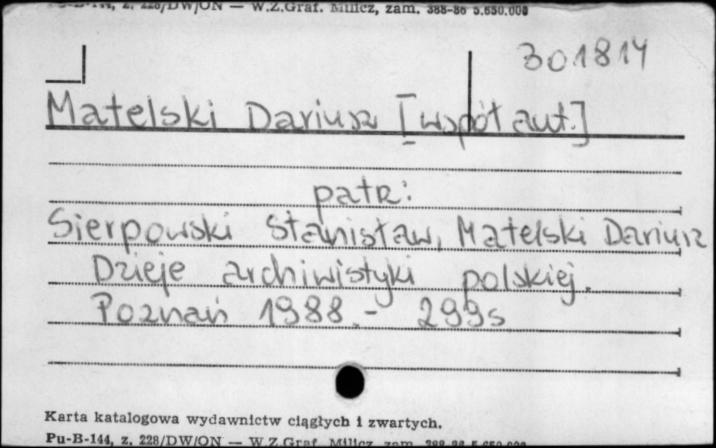 Pu-B-144, z. 228/DW/ON — W.Z.Graf. Milicz, zam. 388-86 5.650.000
301814
Matelski Dariusz [współaut.]
patrz:
Sierpowski Stanisław, Matelski Dariusz
Dzieje archiwistyki polskiej.
Poznań 1988.- 299s
Karta katalogowa wydawnictw ciągłych i zwartych.
Pu-B-144, z. 228/DW/ON — W.Z.Graf. Milicz, zam. 388-86 5.650.000